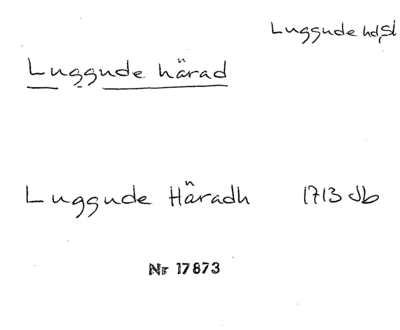 Luggude hd, Sk
Luggude härad
Luggude Häradh 1713 Jb
Nr 17873